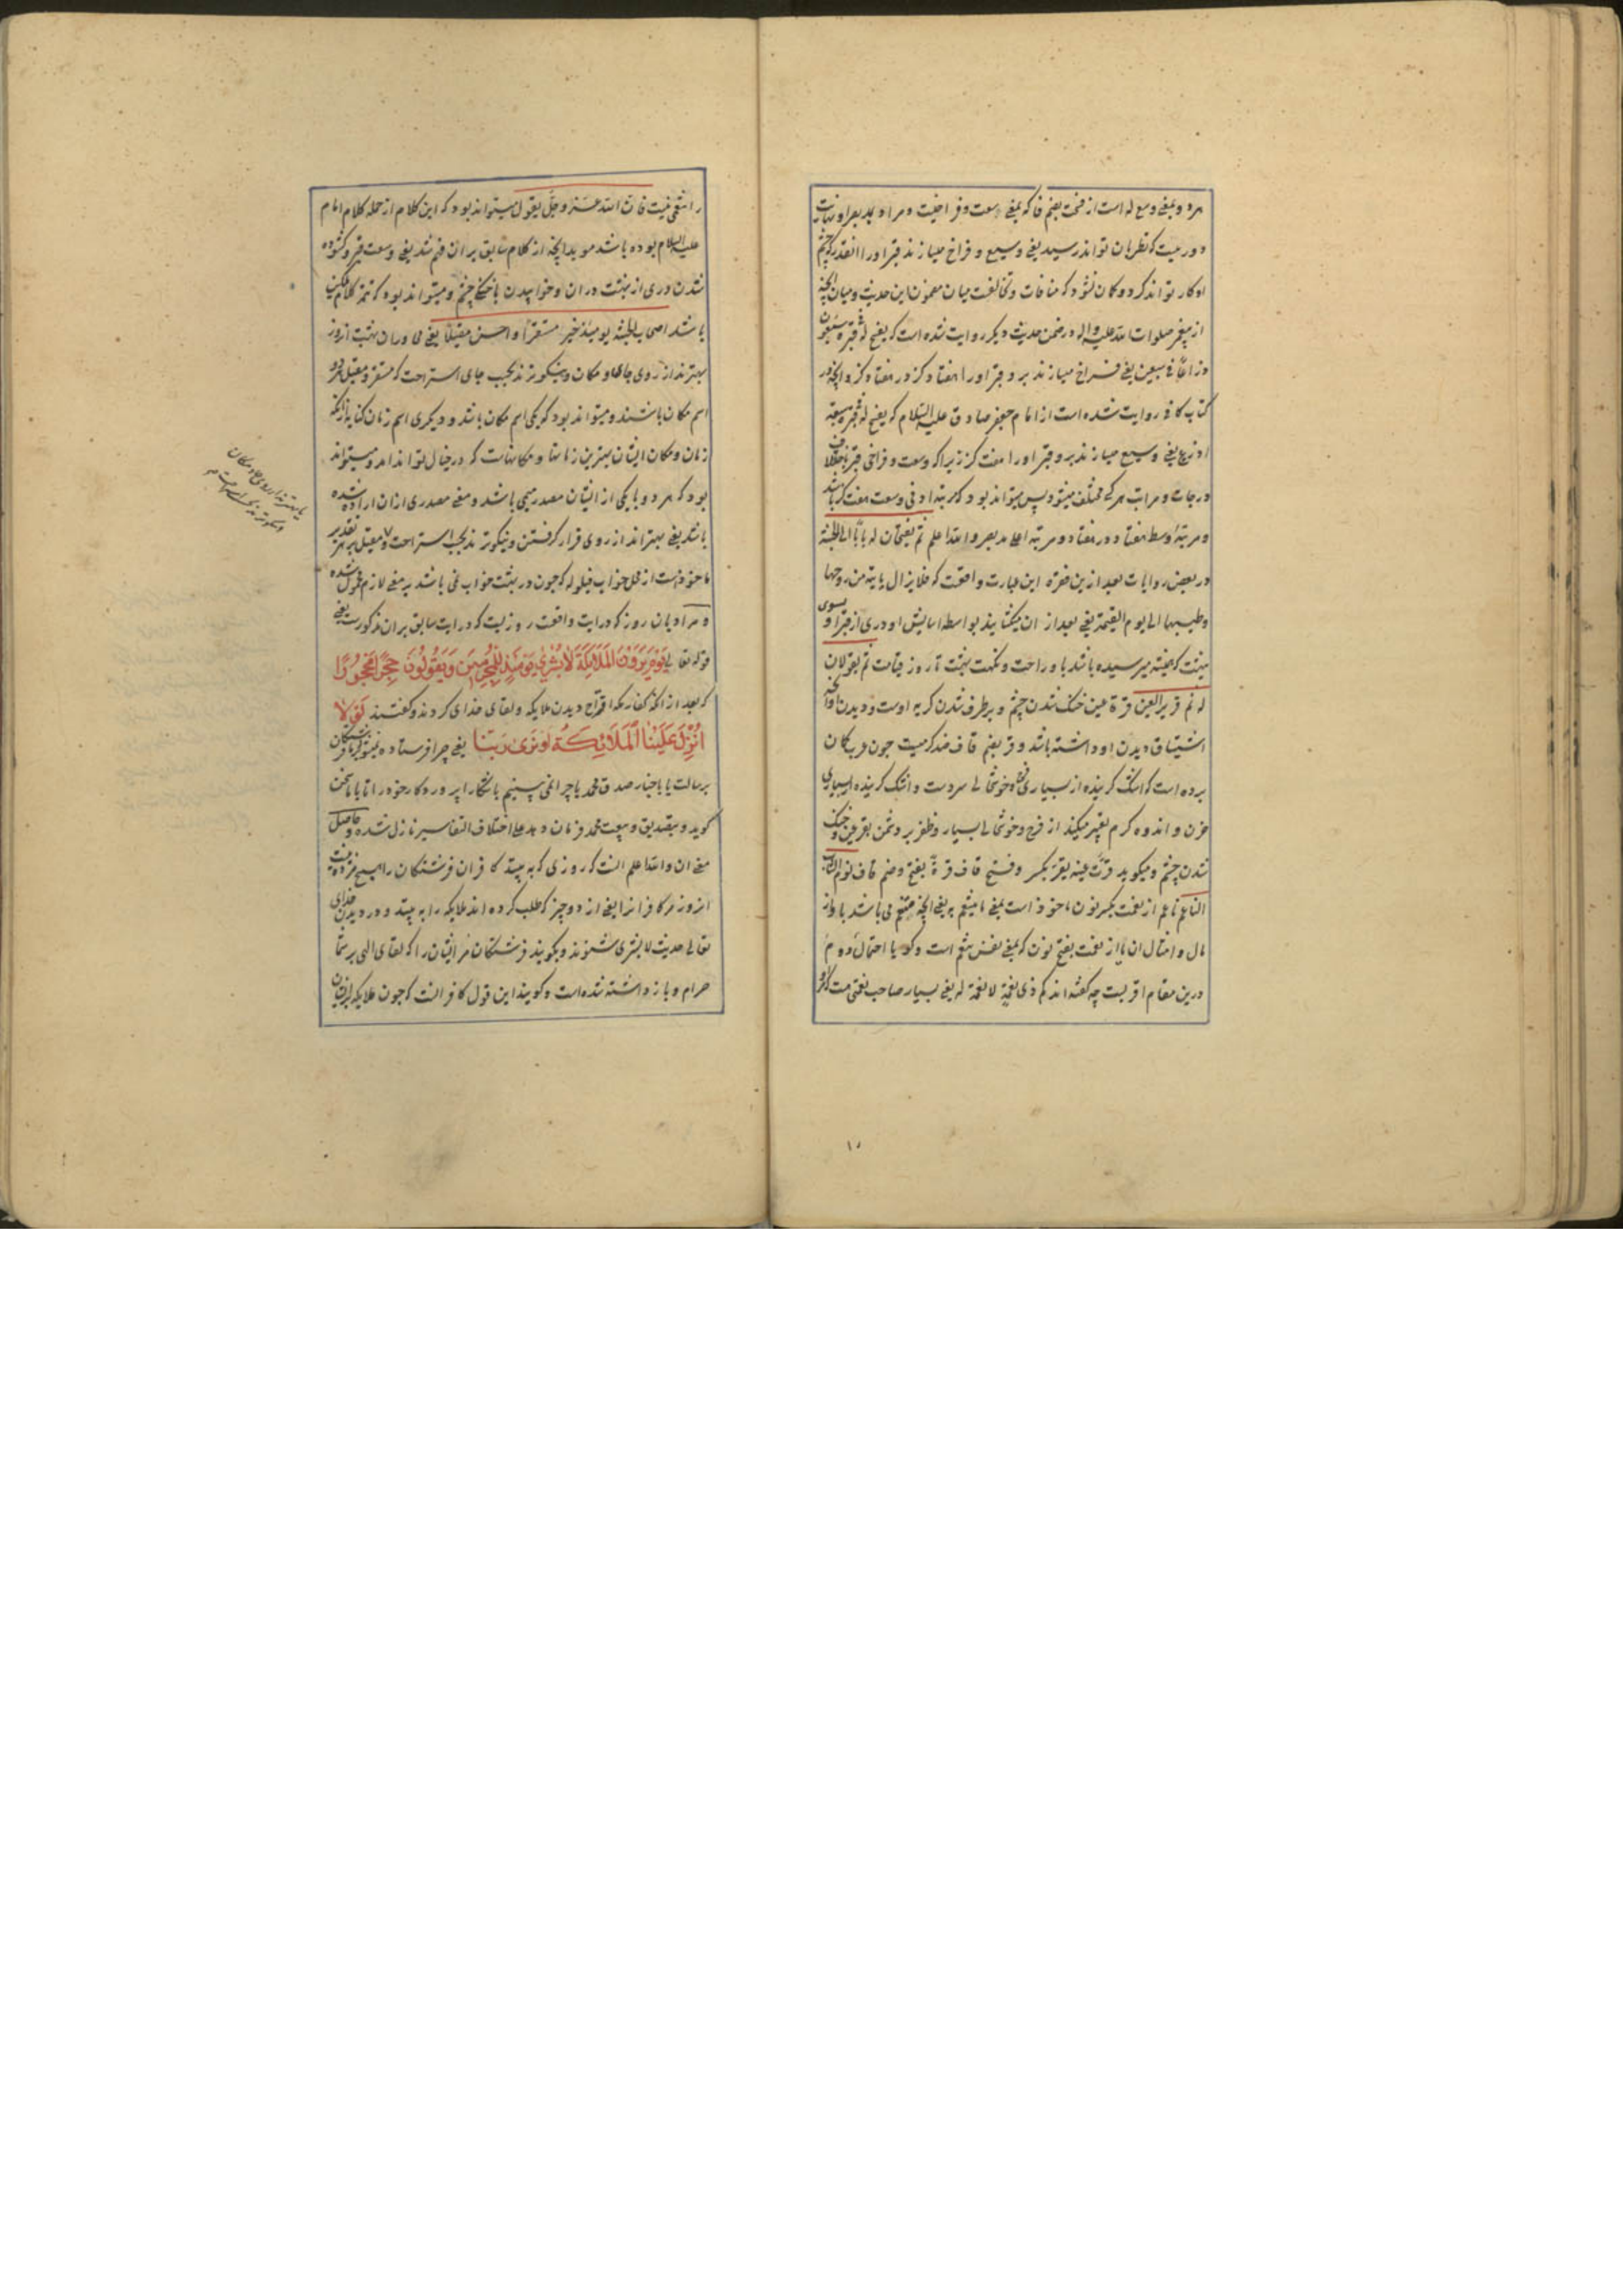 مرد و بمعنی وسع له است از فسحت بضم فا که بمعنی وسعت و فراخیست و مراد بمد بصر او نهایت
دوریست که نظر بان تواند رسید یعنی وسیع و فراخ میسازند قبر او را انقدر که چشم
او کار تواند کرد و گمان نشود که منافات و مخالفت میان مضمون این حدیث و میان انچه
از پیغمبر صلوات الله علیه واله در ضمن حدیث دیگر روایت شده است که یفسح له قبره سبعون
ذراعًا فی سبعین یعنی فراخ میسازند بر و قبر او را هفتاد کز در هفتاد کز و انچه در
کتاب کافی روایت شده است از امام جعفر صادق علیه السلام که یفسح له قبره سبعة
اذرع یعنی وسیع میسازند بر و قبر او را هفت کز زیرا که وسعت و فراخی قبر باختلاف
درجات و مراتب هر کس مختلف میشود پس میتواند بود که مرتبه ادنی وسعت هفت کز باشد
و مرتبه اوسط هفتاد در هفتاد و مرتبه اعلی مد بصر والله اعلم ثم یفتحان له بابًا الی الجنة
در بعض روایات بعد ازین فقره این عبارت واقعست که فلا یزال یاتیه من روحها
وطیبها الی یوم القیمة یعنی بعد از ان میکشایند بواسطه اسایش او دری از قبر او بسوی
بهشت که همیشه میرسیده باشد باو راحت و نکهت بهشت تا روز قیامت ثم یقولان
له نم قریر العین قرة عین خنک شدن چشم و برطرف شدن گریه اوست و دیدن انچه
اشتیاق دیدن او داشته باشد و قر بضم قاف ضد گرمیست چون عرب گمان
برده است که اشک گرینده از بسیاری نشاط و خوشحالی سردست و اشک گرینده از بسیاری
حزن و اندوه گرم تعبیر میکند از فرح و خوشحالی بسیار و ظفر بر دشمن بقر عین و خنک
شدن چشم و میکوید قرّت عینه یقر بکسر و فتح قاف قرة بفتح و ضم قاف نوم الشاب
الناعم ناعم از نعمت بکسر نون ماخوذ است بمعنی ما یتنعم به یعنی انچه متنعم می باشد باو از
مال و امثال ان یا از نعمت بفتح نون که بمعنی نفس تنعم است و گویا احتمال دوم
درین مقام اقربست چه گفته اند کم ذی نعمة لا نعمة له یعنی بسیار صاحب نعمتی هست که او
را تنعمی نیست فان الله عز و جل یقول میتواند بود که این کلام از جمله کلام امام
علیه السلام بوده باشد موید انچه از کلام سابق بر ان فهم شد یعنی وسعت قبر و کشوده
شدن دری از بهشت در ان و خوابیدن با خنکی چشم و میتواند بود که تتمه کلام ملکین
باشد اصحاب الجنة یومئذ خیر مستقرًا و احسن مقیلًا یعنی ملازمان بهشت انروز
بهترند از روی جای و مکان و نیکوترند بحسب جای استراحت که مستقر و مقیل هر دو
اسم مکان باشند و میتواند بود که یکی اسم مکان باشد و دیگری اسم زمان کنایه از انکه
زمان و مکان ایشان بهترین زمانها و مکانهاست که در خیال تواند امد و میتواند
بود که هر دو یا یکی از ایشان مصدر میمی باشد و معنی مصدری از ان اراده شده
باشد یعنی بهترند از روی قرار گرفتن و نیکوترند بحسب استراحت و مقیل بر هر تقدیر
ماخوذست از محل خواب قیلوله که چون در بهشت خواب نمی باشد بر معنی لازم محمول شده
و مراد بان روز که در ایت واقعست روزیست که در ایت سابق بر ان مذکورست یعنی
قوله تعالی یَوْمَ یَرَوْنَ الْمَلَائِکَةَ لَا بُشْرٰی یَوْمَئِذٍ لِلْمُجْرِمِینَ وَیَقُولُونَ حِجْرًا مَحْجُورًا
که بعد از انکه کفار مکه اقتراح دیدن ملایکه و لقای خدای کردند و گفتند لَوْلَا
اُنْزِلَ عَلَیْنَا الْمَلَائِکَةُ اَوْ نَرٰی رَبَّنَا یعنی چرا فرستاده نمیشود بر ما فرشتگان
برسالت یا باخبار صدق محمد یا چرا نمی بینیم باشکارا پروردگار خود را تا با ما سخن
گوید و بتصدیق و تبعیت محمد فرمان دهد علی اختلاف التفاسیر نازل شده و حاصل
معنی ان والله اعلم انست که روزی که به بینند کافران فرشتگان را هیچ مژده نیست
انروز مر کافرانرا یعنی از دو چیز که طلب کرده اند ملایکه را به بینند و در دیدن خدای
تعالی حدیث لا بشری شنوند و بگویند فرشتگان مر ایشان را که لقای الهی بر شما
حرام و بازداشته شده است و گویند این قول کافرانست که چون ملایکه بر ایشان
یا بهترند از روی جا و مکان
و نیکوترند بحسب استراحت
۱۰